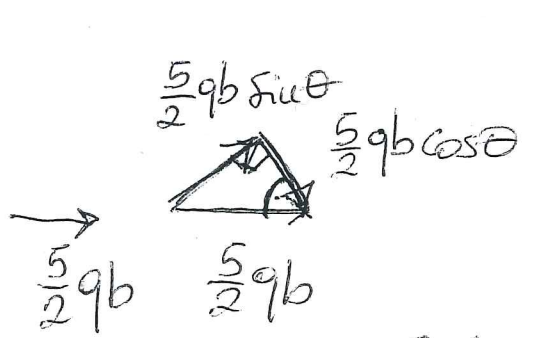 5/2 qb sinθ
5/2 qb cosθ
5/2 qb
5/2 qb